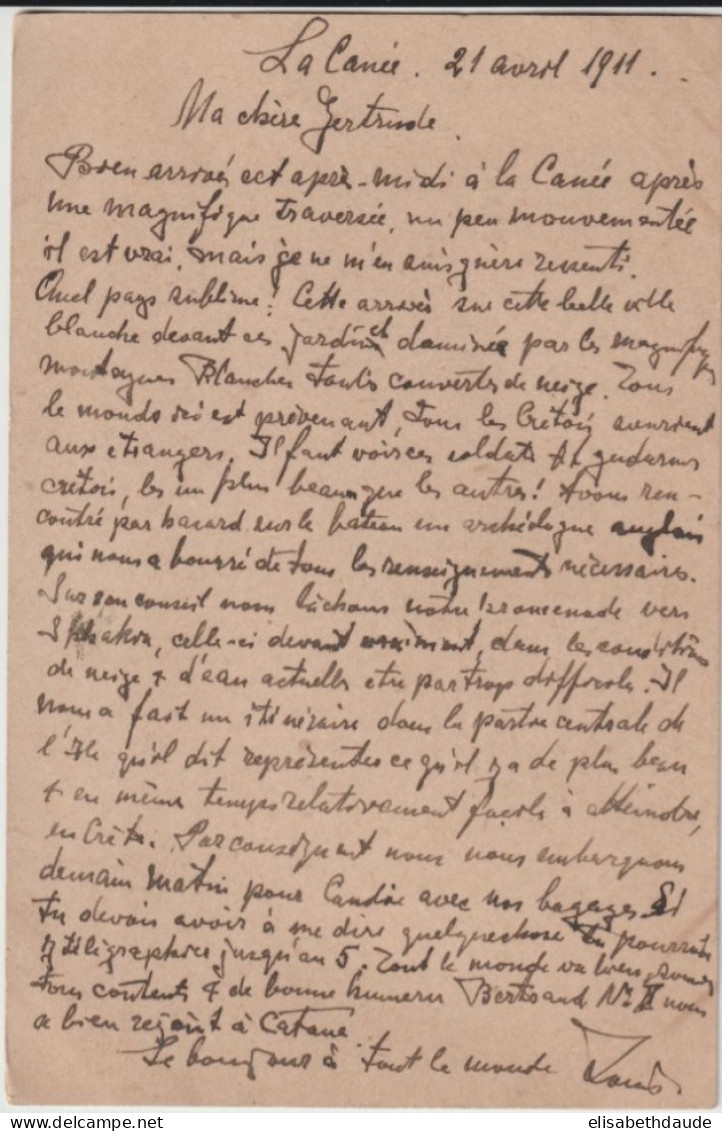 La Canée. 21 avril 1911.
Ma chère Gertrude.
Bien arrivés cet après-midi à la Canée après
une magnifique traversée, un peu mouvementée
il est vrai, mais je ne m'en suis guère ressenti.
Quel pays sublime! Cette arrivée sur cette belle ville
blanche devant ses jardins et dominée par les magnifiques
montagnes Blanches toutes couvertes de neige. Tous
le monde ici est prévenant, tous les Crétois sourient
aux étrangers. Il faut voir ces soldats & gendarmes
crétois, les un plus beau que les autres! Avons ren-
contré par hasard sur le bateau un archéologue anglais
qui nous a bourré de tous les renseignements nécessaires.
Sur son conseil nous lâchons notre promenade vers
Sphakia, celle-ci devant vraiment, dans les conditions
de neige & d'eau actuelles être par trop difficile. Il
nous a fait un itinéraire dans la partie centrale de
l'Ile qu'il dit représenter ce qu'il y a de plus beau
& en même temps relativement facile à atteindre,
en Crète. Par conséquent nous nous embarquons
demain matin pour Candie avec nos bagages. Si
tu devais avoir à me dire quelquechose tu pourrais
y télégraphier jusqu'au 5. Tout le monde va bien, sommes
tous contents & de bonne humeur Bertrand No II nous
a bien rejoint à Catane
Le bonjour à tout le monde Louis
elisabethdaude